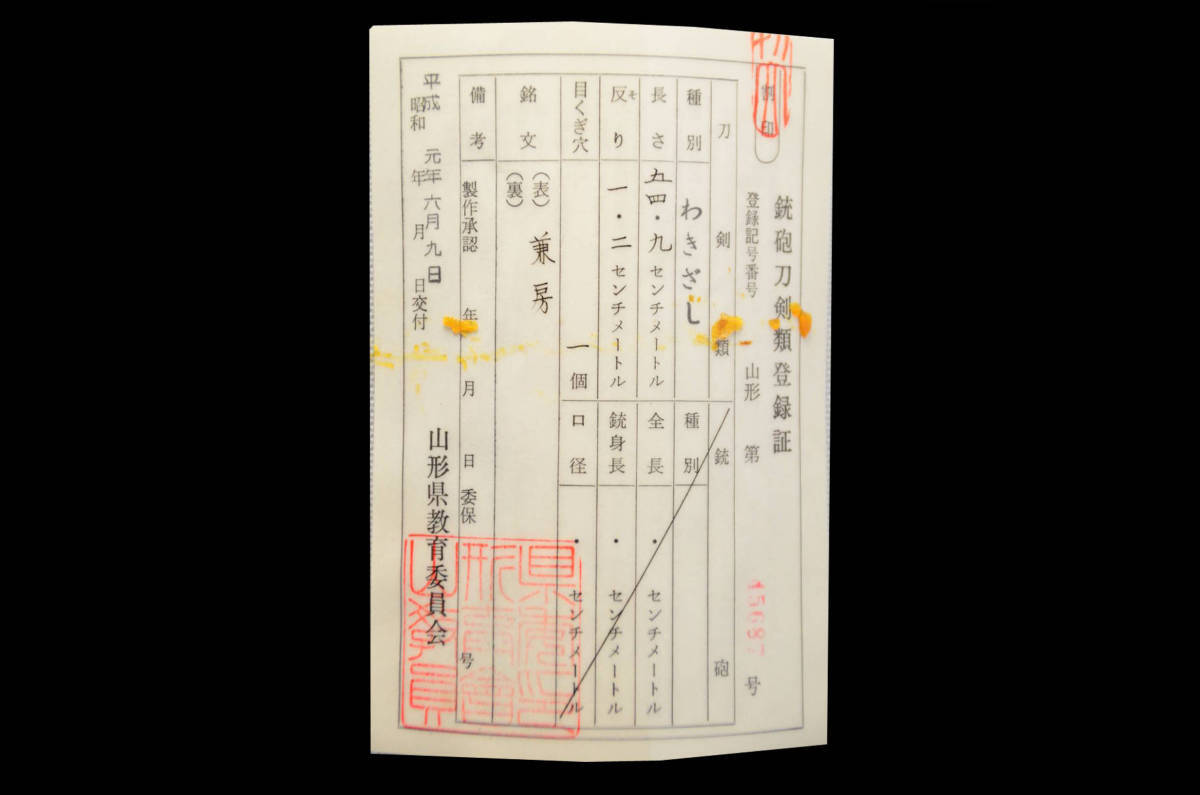 割印
銃砲刀剣類登録証
登録記号番号 山形 第 45687 号
刀剣類
種別 わきざし
長さ 五四・九 センチメートル
反り 一・二 センチメートル
ソ
目くぎ穴 一個
銃砲
種別
全長 ・ センチメートル
銃身長 ・ センチメートル
口径 ・ センチメートル
銘文 (表) 兼房
(裏)
備考 製作承認 年 月 日 委保 号
平成 元年 六月 九日
昭和 年 月 日交付
山形県教育委員会